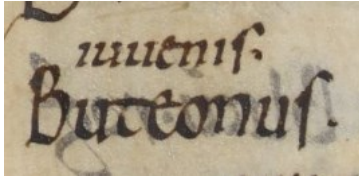 iuuenis.
Buteonus.